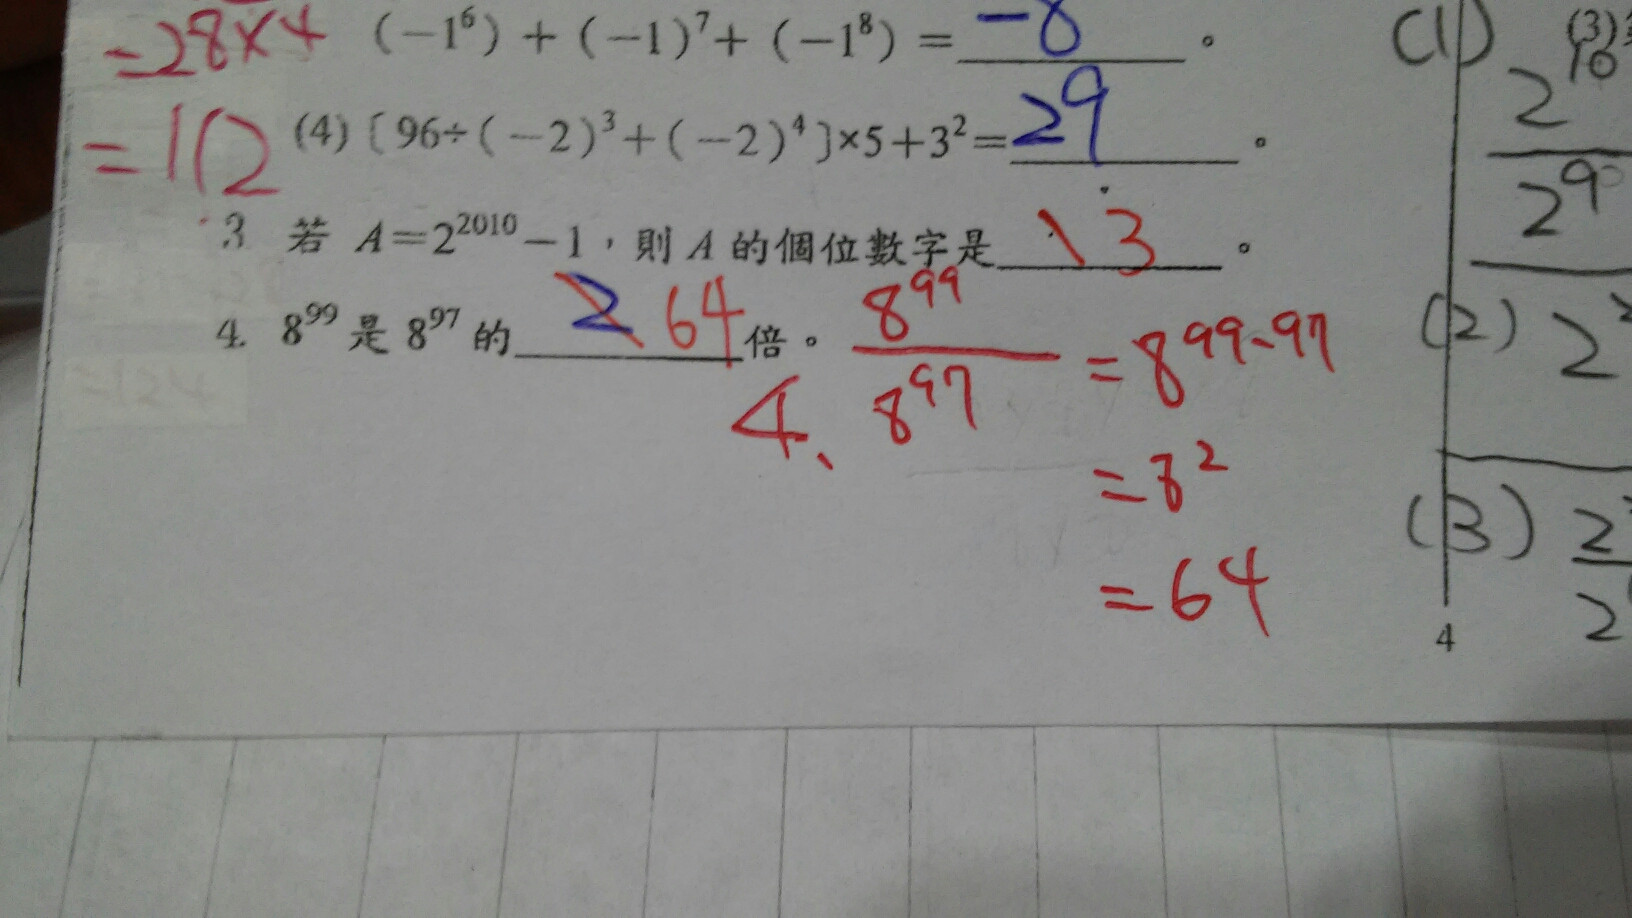 =28×4 (-1⁶)+(-1)⁷+(-1⁸)=-8。
=112 (4)〔96÷(-2)³+(-2)⁴〕×5+3²=29。
3 若 A=2²⁰¹⁰-1，則 A 的個位數字是 3。
4. 8⁹⁹是 8⁹⁷的 2 64 倍。
4、8⁹⁹/8⁹⁷ =8⁹⁹⁻⁹⁷
=8²
=64
(1) (3)
2¹⁰
2⁹
(2) 2
(3) 2
2
4